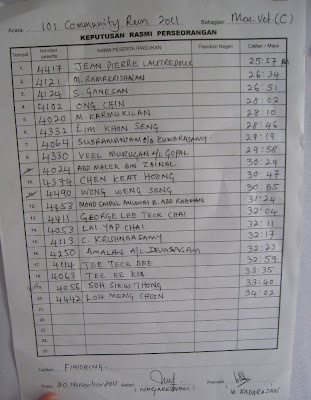 Acara: 101 Community Run 2011 Bahagian: Men Vet (C)
KEPUTUSAN RASMI PERSEORANGAN
Tempat Nombor peserta NAMA PESERTA / PASUKAN Pasukan Negeri Catitan / Masa
1. 4417 JEAN PIERRE LAUTREDOUX 25:57
2. 4121 M. RAMAKRISHNAN 26:34
3. 4124 S. GANESAN 26:51
4. 4102 ONG CHIN 28:02
5. 4020 M. KARMUKILAN 28:10
6. 4332 LIM KHOON SENG 28:46
7. 4064 SUBRAMANIAM KUMARASAMY 29:19
8. 4330 VEEL MURUGAN A/L GOPAL 29:58
9. 4024 ABD MALEK BIN ZAINAL 30:29
10. 4374 CHEN KEAT HOONG 30:47
11. 4490 WONG WENG SENG 30:55
12. 4453 MOHD SAIFUL B. ABD RAHMAN 31:24
13. 4411 GEORGE LEE TECK CHAI 32:04
14. 4053 LAI YAP CHAI 32:11
15. 4113 C. KRISHNASAMY 32:17
16. 4250 AMALAN A/L DEVASAGAM 32:23
17. 4114 TEE TECK BEE 32:59
18. 4063 TEE EE KIA 33:35
19. 4056 SOH SIEW THONG 33:40
20. 4442 LOH MENG CHOON 34:02
21.
22.
23.
24.
25.
Catitan: FINISHING
Tarikh: 20 November 2011